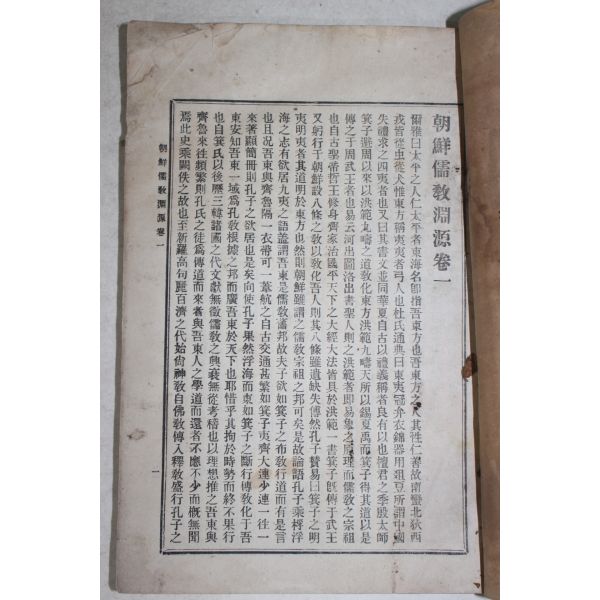 朝鮮儒教淵源卷一
爾雅曰太平之人仁太平者東海名卽指吾東方也吾東方之人其性仁善故南蠻北狄西
戎皆從虫從犬惟東方稱夷夷者弓人也杜氏通典曰東夷冠弁衣錦器用俎豆所謂中國
失禮求之四夷者也又曰其書文並同華夏自古以禮義稱者良有以也檀君之季殷太師
箕子避周以來以洪範九疇之道敎化東方洪範九疇天所以錫夏禹而箕子得其道以是
傳之于周武王者也易云河出圖洛出書聖人則之洪範者卽易象之原理而儒敎之宗祖
也自古聖帝哲王修身齊家治國平天下之大經大法皆具於洪範一書箕子旣傳于武王
又躬行于朝鮮設八條之敎以敎化吾人則其八條雖遺缺失傳然孔子贊易曰箕子之明
夷明夷者其道明於東方也然則朝鮮雖謂之儒敎宗祖之邦可矣是故論語孔子乘桴浮
海之志有欲居九夷之語蓋謂吾東是儒敎舊邦故夫子欲如箕子之布敎行道而有是言
也且况吾東與齊魯隔一衣帶可一葦航之自古交通甚繁如箕子夷齊大連少連一往一
來著顯簡冊則孔子之欲居也是矣向使孔子果然浮海而東如箕子之斷行傳敎化于吾
東安知吾東一域爲孔敎根據之邦而廣吾東於天下也耶惜乎其拘於時勢而終不果行
也自箕氏以後歷三韓諸國之代文獻無徵儒敎之興衰無從考稽也以理想推之吾東與
齊魯來往頻繁則孔氏之徒爲傳道而來者與吾東人之學道而還者不應不少而概無聞
焉此史乘闕佚之故也至新羅高句麗百濟之代始尙神敎自佛敎傳入釋敎盛行孔子之
朝鮮儒敎淵源卷一
一